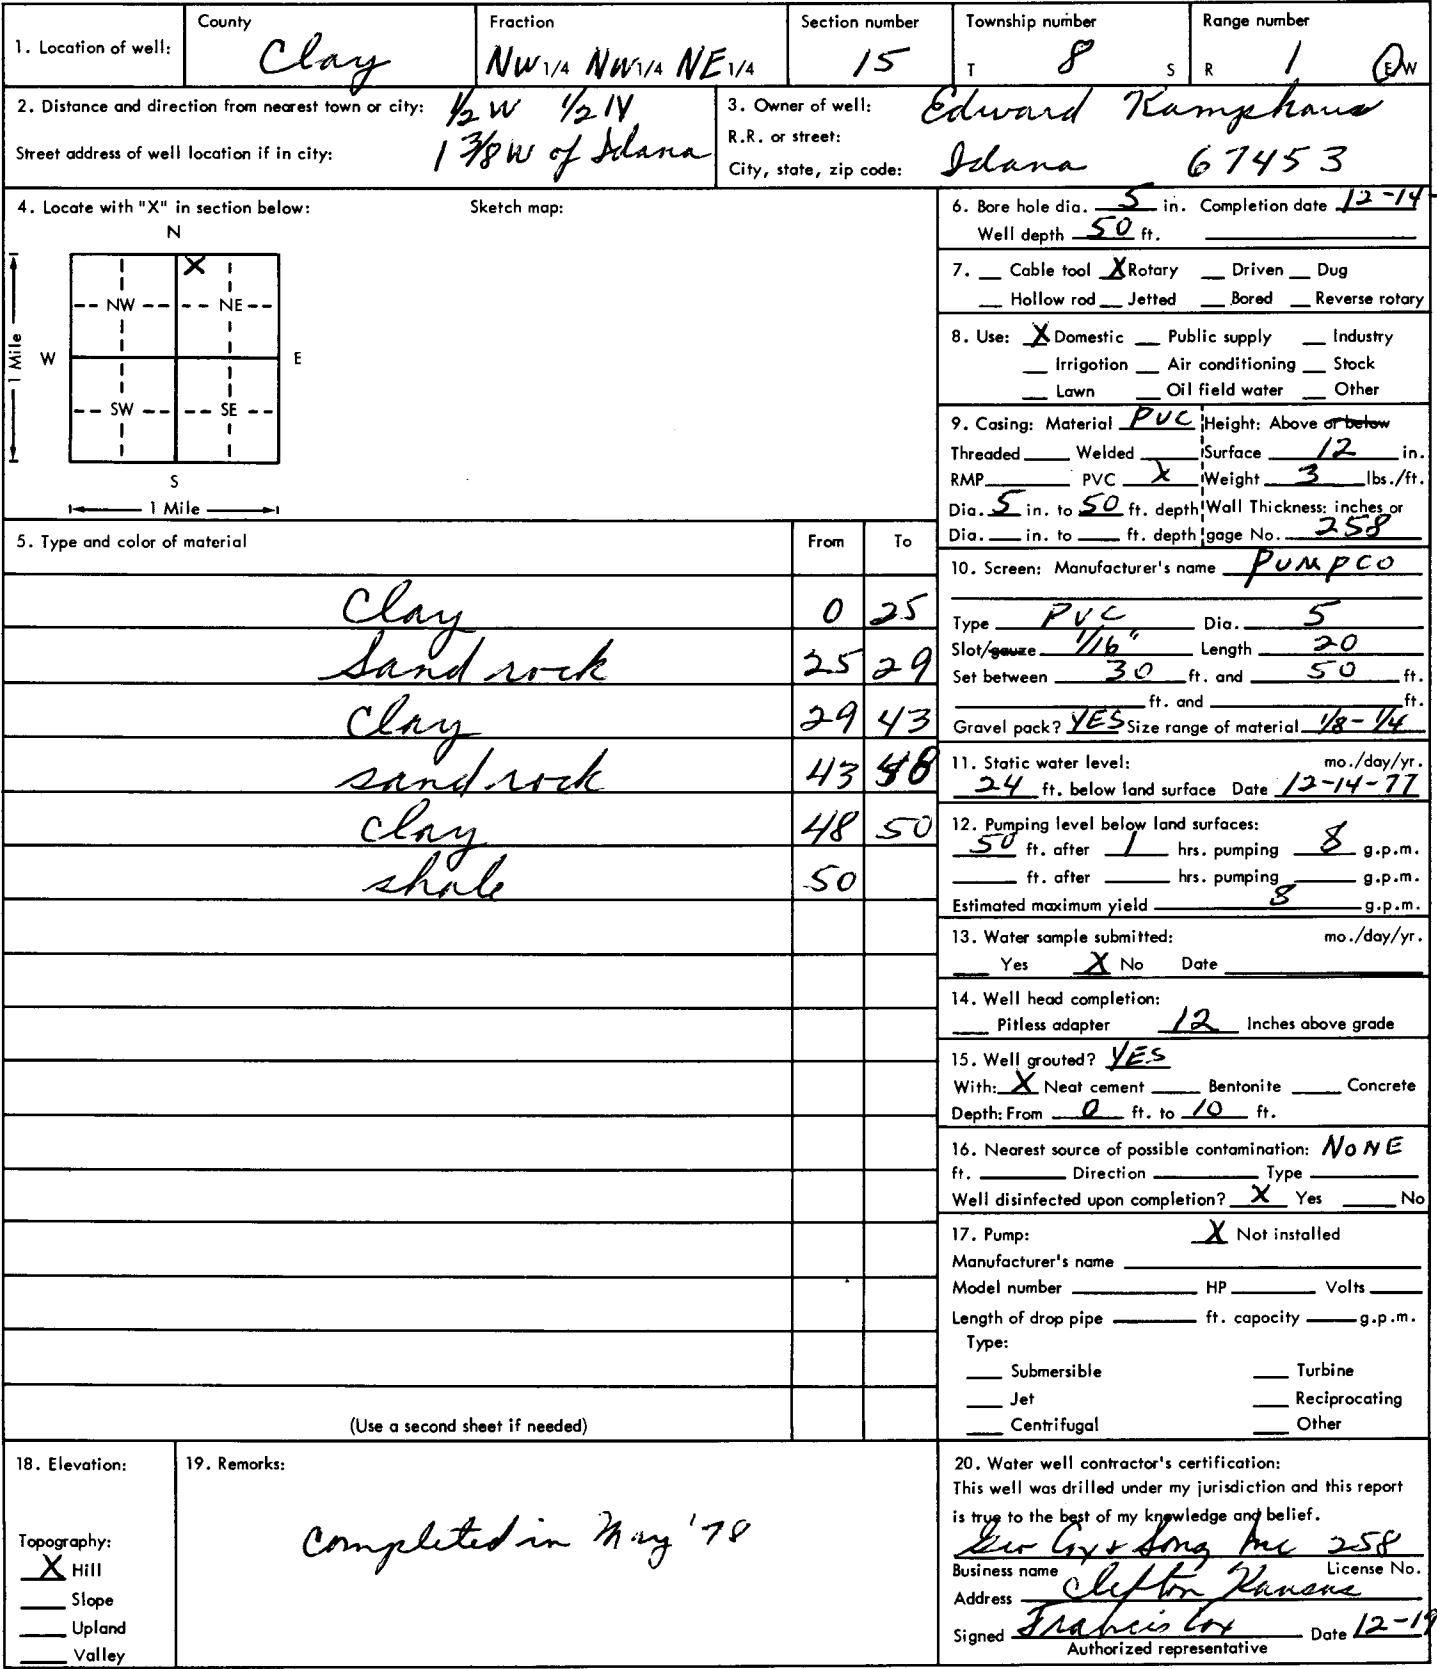 1. Location of well: County Clay Fraction NW 1/4 NW 1/4 NE 1/4 Section number 15 Township number T 8 S Range number R 1 E W
2. Distance and direction from nearest town or city: 1/2 W 1/2 N
Street address of well location if in city: 1 3/8 W of Idana
3. Owner of well: Edward Kamphaus
R.R. or street:
City, state, zip code: Idana 67453
4. Locate with "X" in section below: Sketch map:
N
X
NW NE
1 Mile W E
SW SE
S
1 Mile
5. Type and color of material From To
Clay 0 25
Sand rock 25 29
Clay 29 43
sand rock 43 48
clay 48 50
shale 50
(Use a second sheet if needed)
6. Bore hole dia. 5 in. Completion date 12-14-
Well depth 50 ft.
7. Cable tool X Rotary Driven Dug
Hollow rod Jetted Bored Reverse rotary
8. Use: X Domestic Public supply Industry
Irrigation Air conditioning Stock
Lawn Oil field water Other
9. Casing: Material PVC Height: Above or below
Threaded Welded Surface 12 in.
RMP PVC X Weight 3 lbs./ft.
Dia. 5 in. to 50 ft. depth Wall Thickness: inches or
Dia. in. to ft. depth gage No. 258
10. Screen: Manufacturer's name PUMPCO
Type PVC Dia. 5
Slot/gauze 1/16" Length 20
Set between 30 ft. and 50 ft.
ft. and ft.
Gravel pack? YES Size range of material 1/8-1/4
11. Static water level: mo./day/yr.
24 ft. below land surface Date 12-14-77
12. Pumping level below land surfaces:
50 ft. after 1 hrs. pumping 8 g.p.m.
ft. after hrs. pumping g.p.m.
Estimated maximum yield 8 g.p.m.
13. Water sample submitted: mo./day/yr.
Yes X No Date
14. Well head completion:
Pitless adapter 12 Inches above grade
15. Well grouted? YES
With: X Neat cement Bentonite Concrete
Depth: From 0 ft. to 10 ft.
16. Nearest source of possible contamination: NONE
ft. Direction Type
Well disinfected upon completion? X Yes No
17. Pump: X Not installed
Manufacturer's name
Model number HP Volts
Length of drop pipe ft. capacity g.p.m.
Type:
Submersible Turbine
Jet Reciprocating
Centrifugal Other
18. Elevation:
Topography:
X Hill
Slope
Upland
Valley
19. Remarks:
Completed in May '78
20. Water well contractor's certification:
This well was drilled under my jurisdiction and this report
is true to the best of my knowledge and belief.
Geo Cox & Sons Inc 258
Business name License No.
Address Clifton Kansas
Signed Francis Cox Date 12-19
Authorized representative